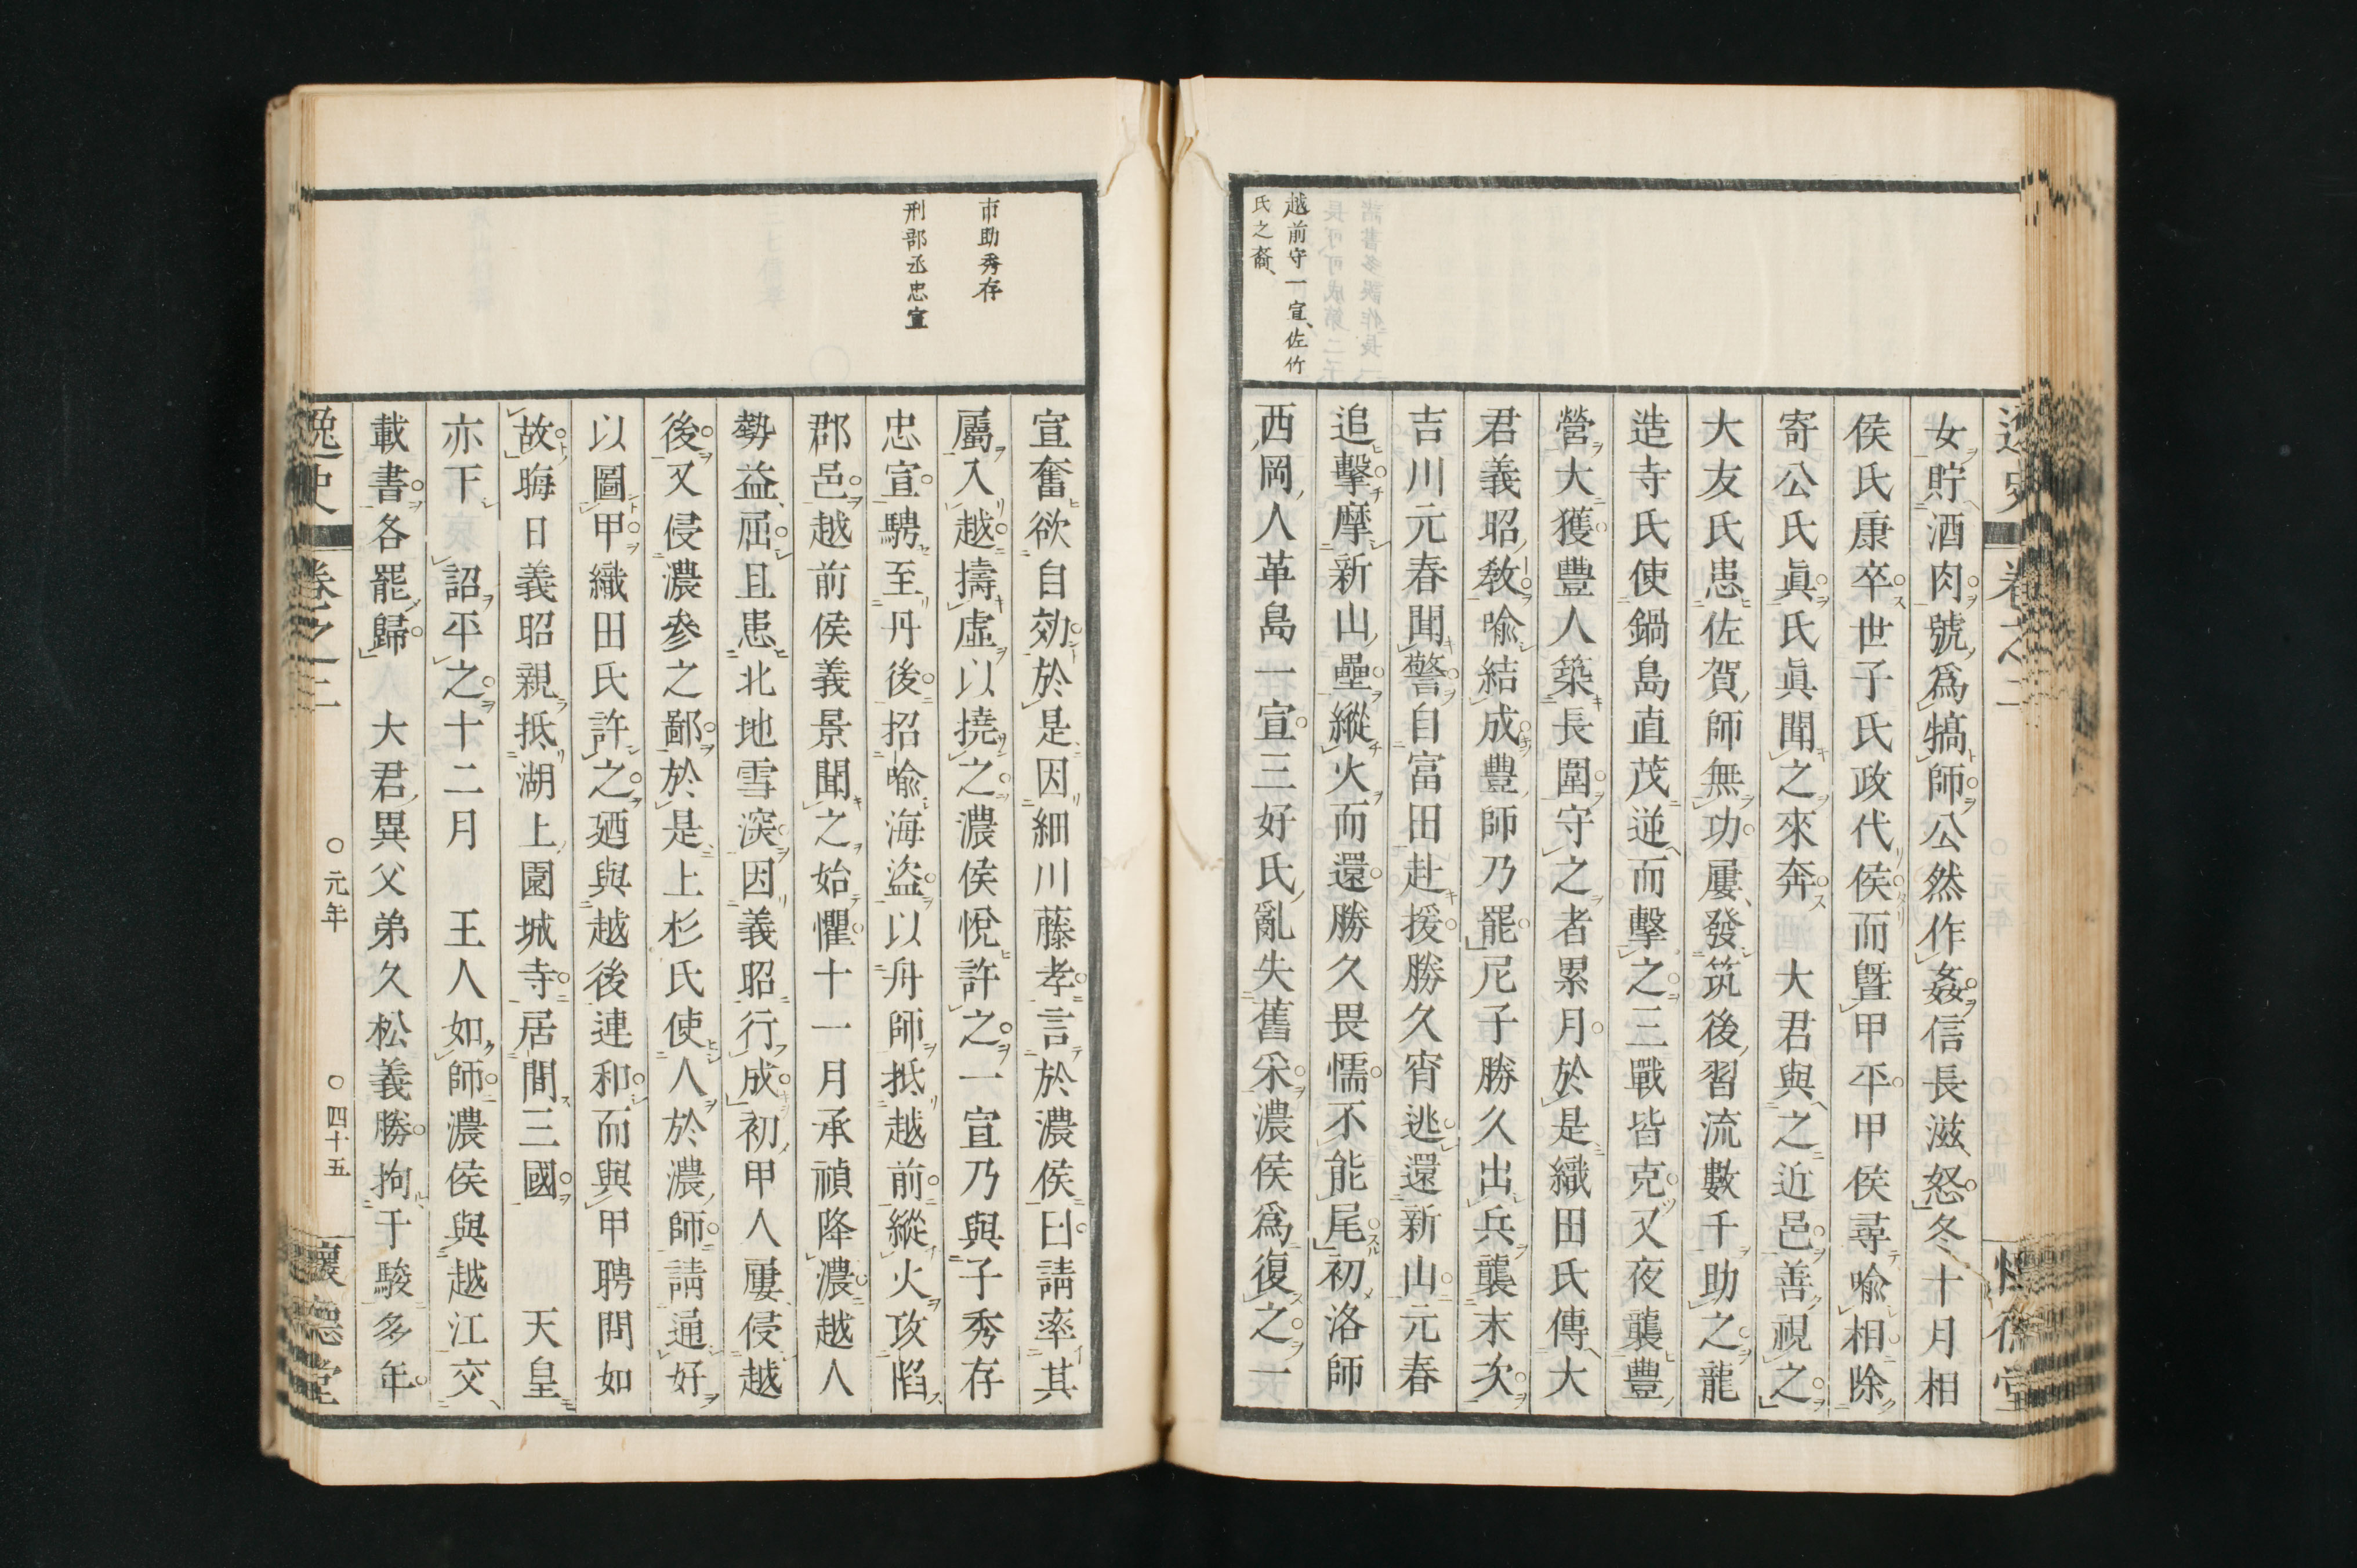 越前守一宣、佐竹
氏之裔、
女貯酒肉號爲犒師公然作姦信長滋怒冬十月相
侯氏康卒世子氏政代侯而曁甲平甲侯尋喩相除
寄公氏眞氏眞聞之來奔　大君與之近邑善視之
大友氏患佐賀師無功屢發筑後習流數千助之龍
造寺氏使鍋島直茂逆而擊之三戰皆克又夜襲豐
營大獲豐人築長圍守之者累月於是織田氏傳大
君義昭敎喩結成豐師乃罷尼子勝久出兵襲末次
吉川元春聞警自富田赴援勝久宵逃還新山元春
追擊摩新山壘縱火而還勝久畏懦不能尾初洛師
西岡人革島一宣三好氏亂失舊采濃侯爲復之一
市助秀存
刑部丞忠宣
宣奮欲自効於是因細川藤孝言於濃侯曰請率其
屬入越擣虛以撓之濃侯悅許之一宣乃與子秀存
忠宣騁至丹後招喩海盜以舟師抵越前縱火攻焰
郡邑越前侯義景聞之始懼十一月承禎降濃越人
勢益屈且患北地雪深因義昭行成初甲人屢侵越
後又侵濃參之鄙於是上杉氏使人於濃師請通好
以圖甲織田氏許之廼與越後連和而與甲聘問如
故晦日義昭親抵湖上園城寺居間三國　　天皇
亦下　詔平之十二月　王人如師濃侯與越江交
載書各罷歸　大君異父弟久松義勝拘于駿多年
逸史　卷之三　○元年　○四十五　懷德堂